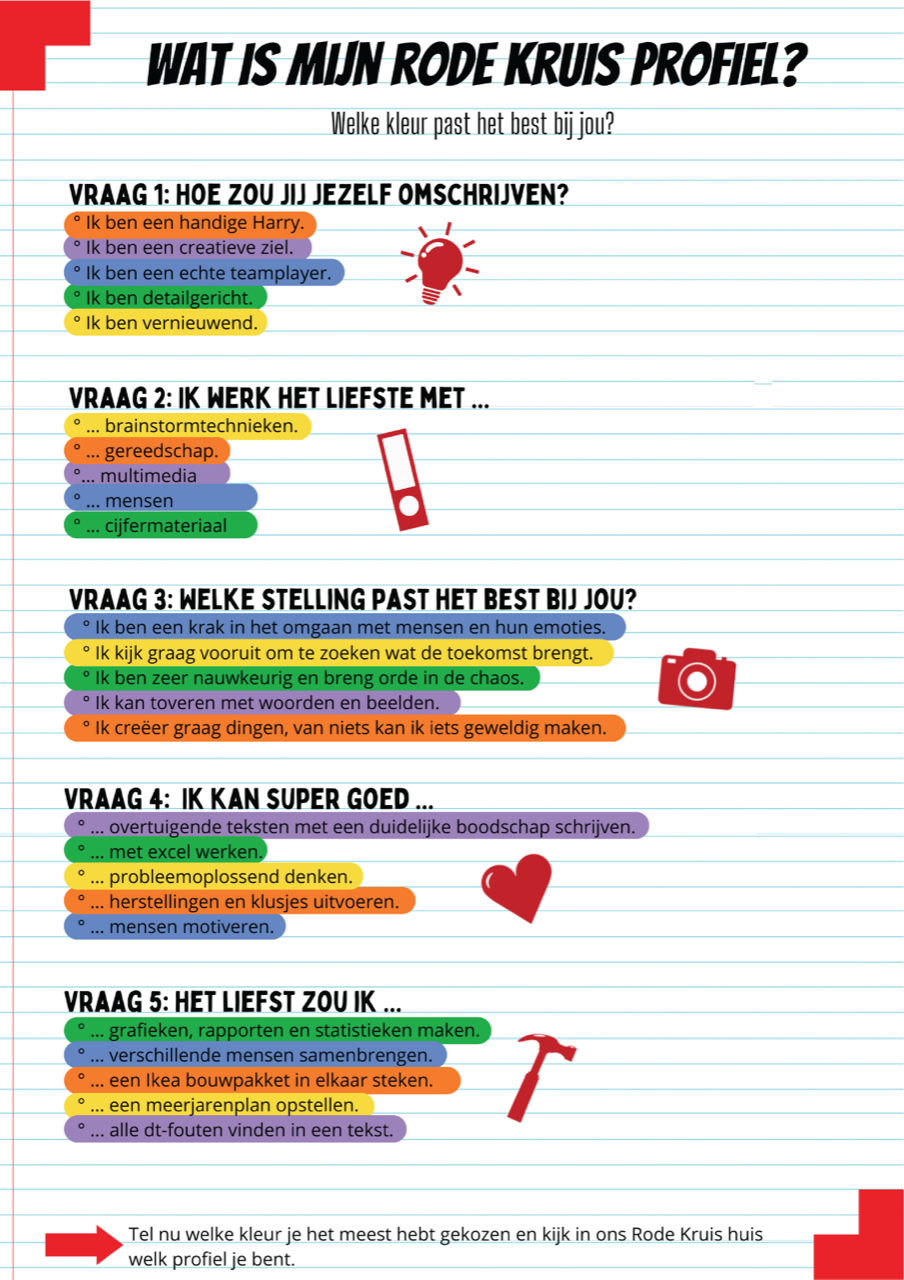 WAT IS MIJN RODE KRUIS PROFIEL?
Welke kleur past het best bij jou?
VRAAG 1: HOE ZOU JIJ JEZELF OMSCHRIJVEN?
° Ik ben een handige Harry.
° Ik ben een creatieve ziel.
° Ik ben een echte teamplayer.
° Ik ben detailgericht.
° Ik ben vernieuwend.
VRAAG 2: IK WERK HET LIEFSTE MET ...
° ... brainstormtechnieken.
° ... gereedschap.
°... multimedia
° ... mensen
° ... cijfermateriaal
VRAAG 3: WELKE STELLING PAST HET BEST BIJ JOU?
° Ik ben een krak in het omgaan met mensen en hun emoties.
° Ik kijk graag vooruit om te zoeken wat de toekomst brengt.
° Ik ben zeer nauwkeurig en breng orde in de chaos.
° Ik kan toveren met woorden en beelden.
° Ik creëer graag dingen, van niets kan ik iets geweldig maken.
VRAAG 4: IK KAN SUPER GOED ...
° ... overtuigende teksten met een duidelijke boodschap schrijven.
° ... met excel werken.
° ... probleemoplossend denken.
° ... herstellingen en klusjes uitvoeren.
° ... mensen motiveren.
VRAAG 5: HET LIEFST ZOU IK ...
° ... grafieken, rapporten en statistieken maken.
° ... verschillende mensen samenbrengen.
° ... een Ikea bouwpakket in elkaar steken.
° ... een meerjarenplan opstellen.
° ... alle dt-fouten vinden in een tekst.
Tel nu welke kleur je het meest hebt gekozen en kijk in ons Rode Kruis huis
welk profiel je bent.